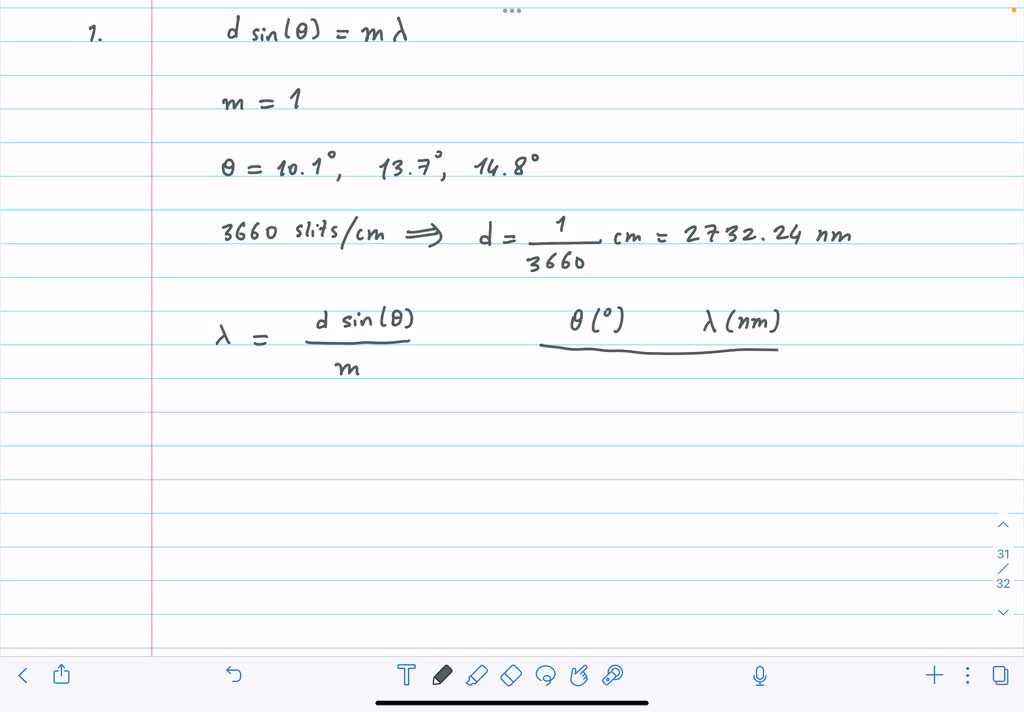 1. d sin(θ) = m λ
m = 1
θ = 10.1°, 13.7°, 14.8°
3660 slits/cm ⟹ d = 1/3660 cm = 2732.24 nm
λ = d sin(θ)/m θ(°) λ(nm)
31
/
32
T